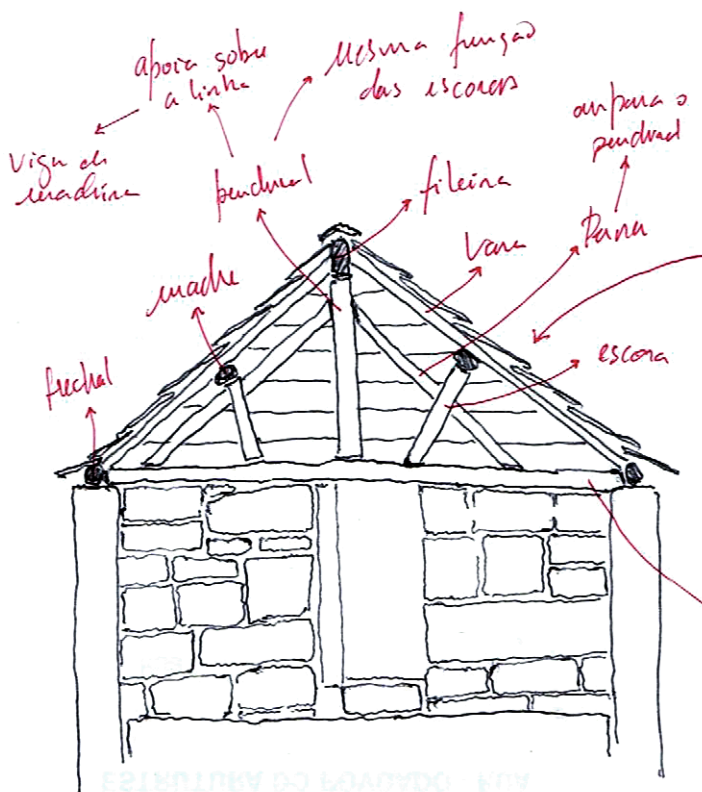 apoia sobre
a linha
mesma função
das escoras
ampara o
pendural
viga de
madeira
pendural
fileira
vara
Perna
madre
escora
frechal
ESTRUTURA DO POVOADO RUA